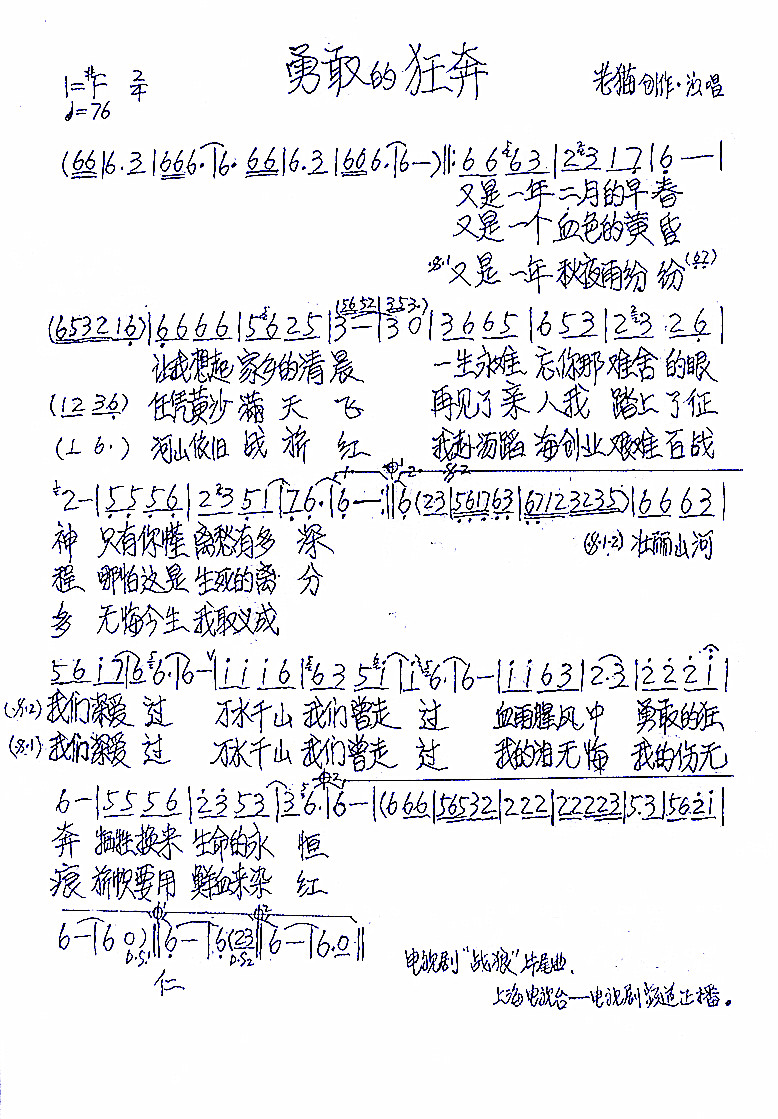 勇敢的狂奔
1=#F 2/4
♩=76
老猫创作·演唱
(66|6.3|666.|6.66|6.3|666.|6—)||:6663|2317|6—|
又是一年二月的早春
又是一个血色的黄昏
又是一年秋夜雨纷纷
(653216)|6666|5625|3—|30|3665|653|2326|
让我想起家乡的清晨 一生永难忘你那难舍的眼
(1236) 任凭黄沙满天飞 再见了亲人我踏上了征
(16.) 河山依旧战旗红 我赴汤蹈海创业艰难百战
2-|5556|2351|76.|6—:||6(23|561763|67123235)|6663|
神 只有你懂离愁有多深 壮丽山河
程 哪怕这是生死的离分
多 无悔今生我取义成
5617|66.|6-|1116|6351|16.|6-|1163|2.3|2221|
我们深爱过 万水千山我们曾走过 血雨腥风中 勇敢的狂
我们深爱过 万水千山我们曾走过 我的泪无悔 我的伤无
6-|5556|2353|36.|6-|(666|56532|222|22223|5.3|5621|
奔 牺牲换来生命的永恒
痕 旗帜要用鲜血来染红
6-|60)||6-|6(23||6-|6.0||
D.S1 D.S2
仁
电视剧"战狼"片尾曲.
上海电视台——电视剧频道正播。